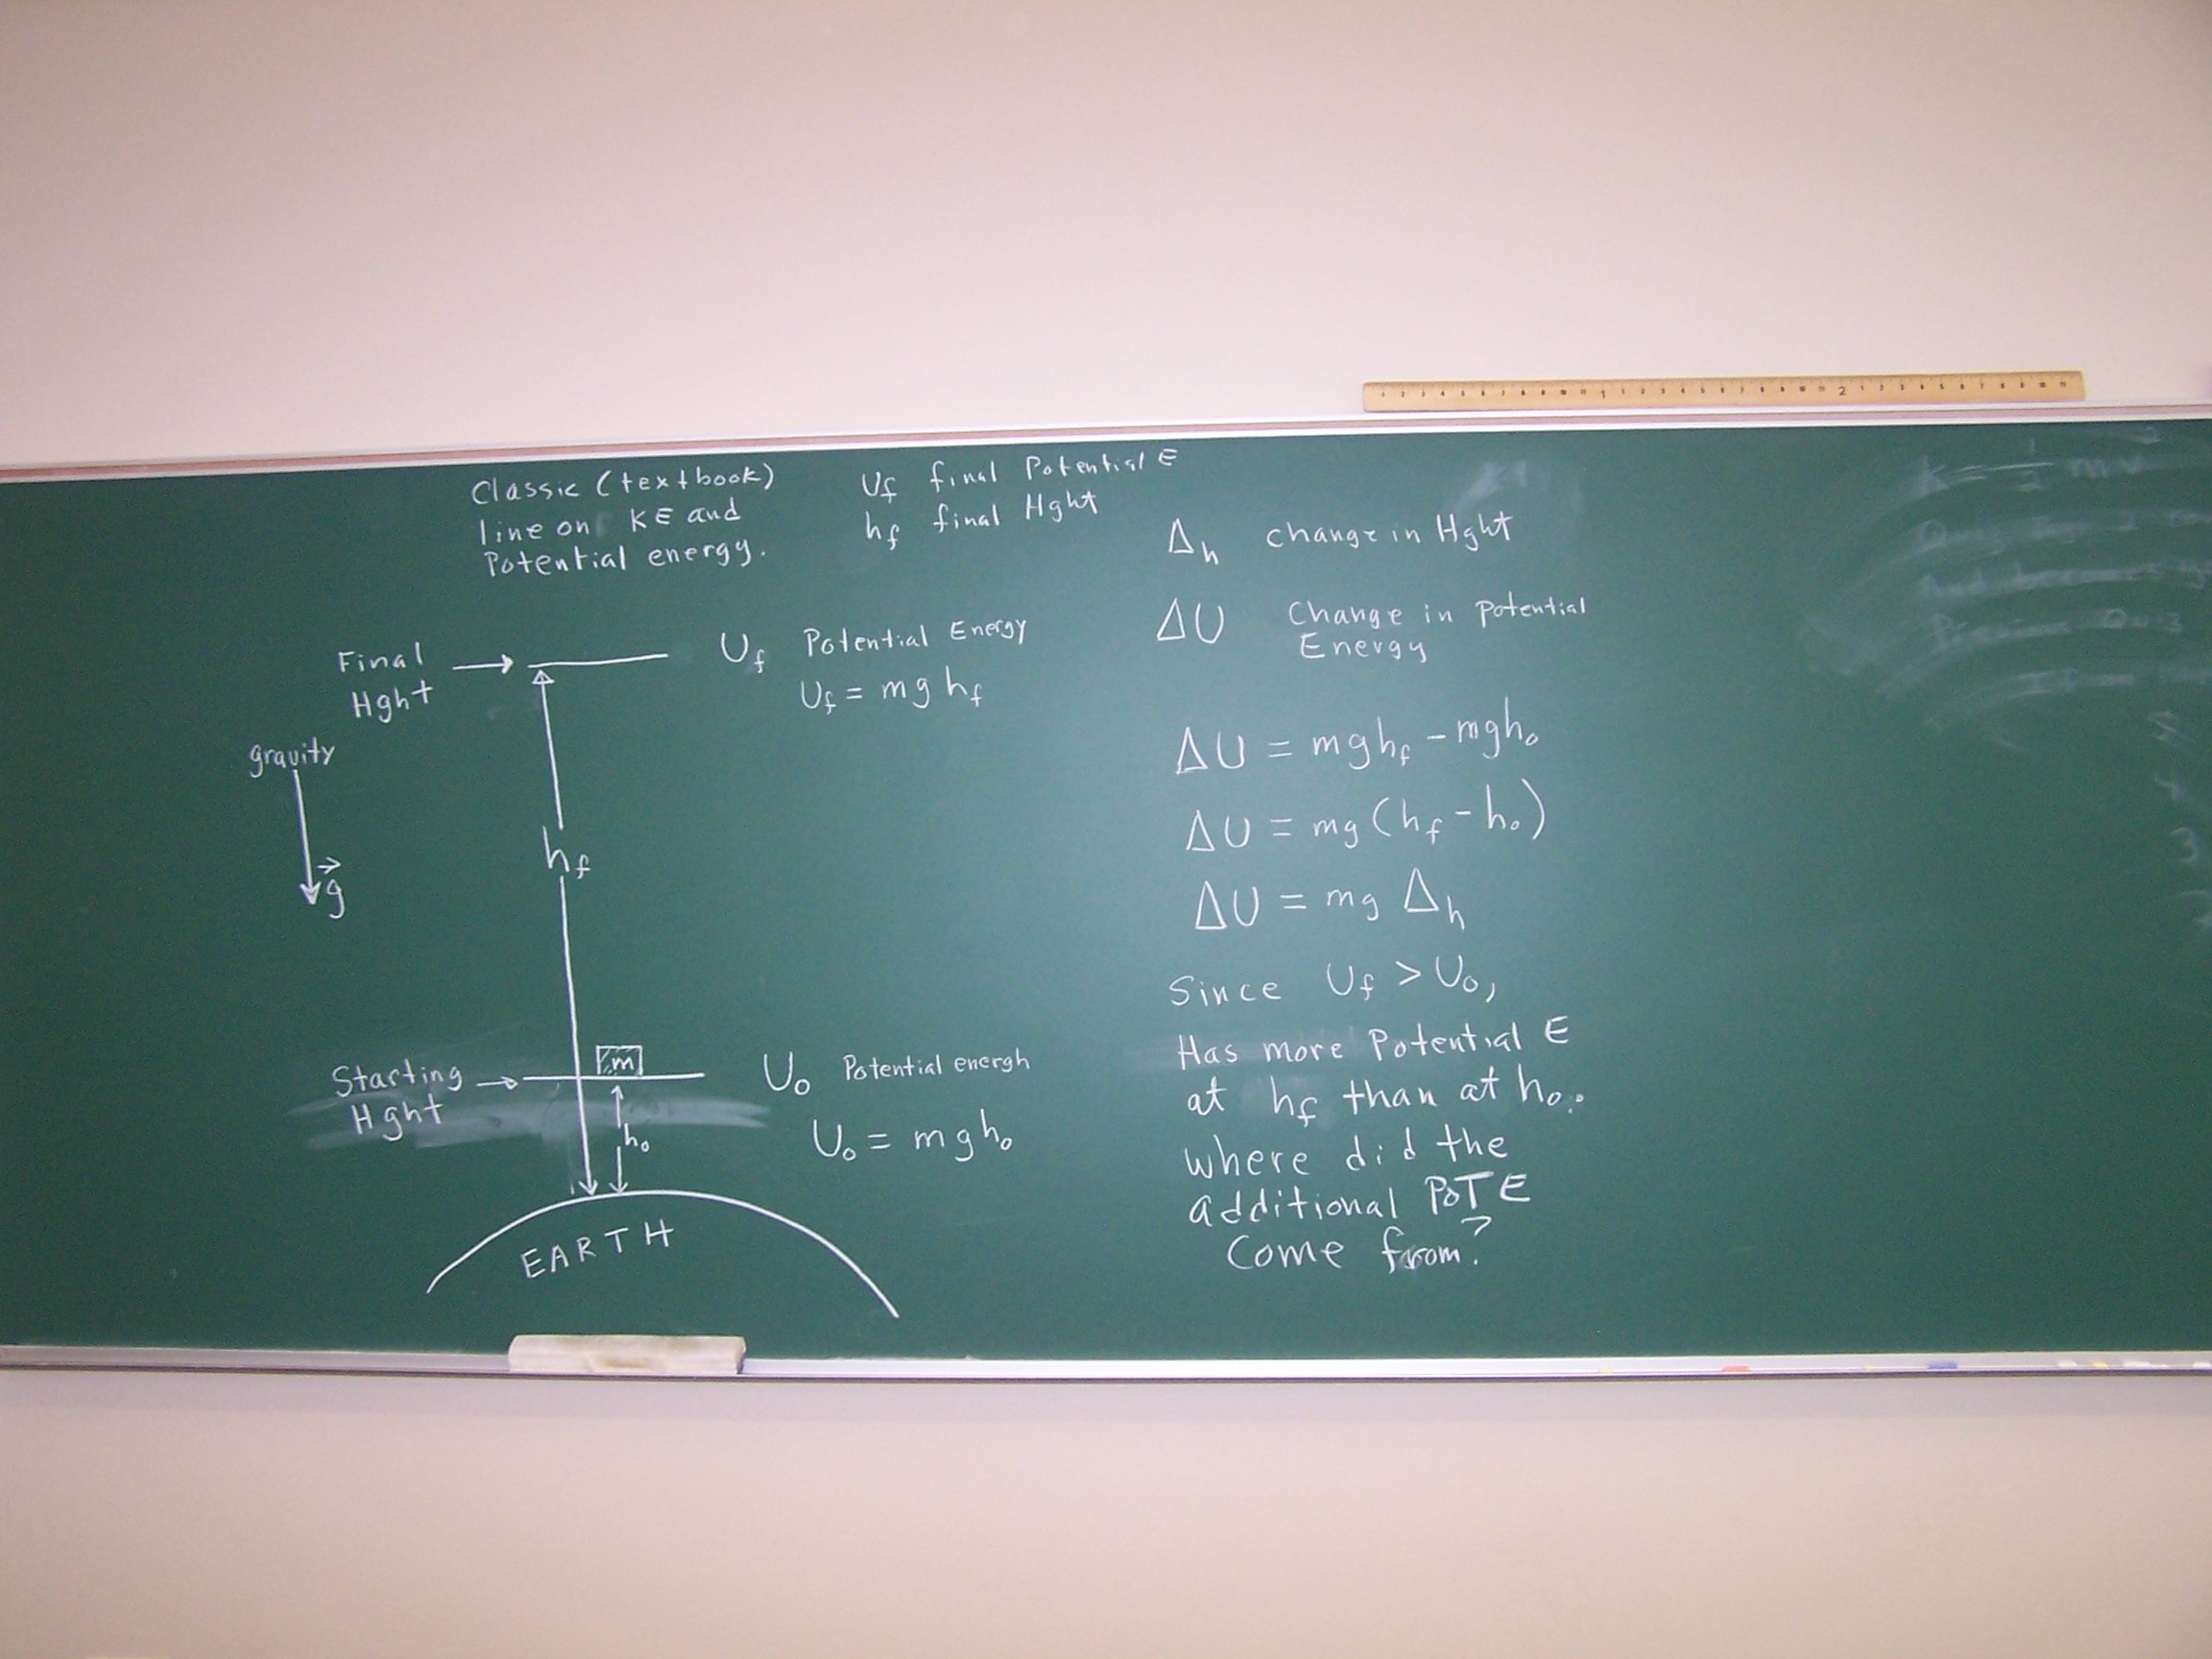 Classic (textbook)
line on KE and
Potential energy.
Uf final Potential E
hf final Hght
Δh change in Hght
ΔU Change in Potential
Energy
Final
Hght
Uf Potential Energy
Uf = mghf
gravity
g
hf
Starting
Hght
m
ho
Uo Potential energh
Uo = mgho
EARTH
ΔU = mghf - mgho
ΔU = mg(hf - ho)
ΔU = mg Δh
Since Uf > Uo,
Has more Potential E
at hf than at ho.
where did the
additional POT E
Come from?
K = 1/2 mv